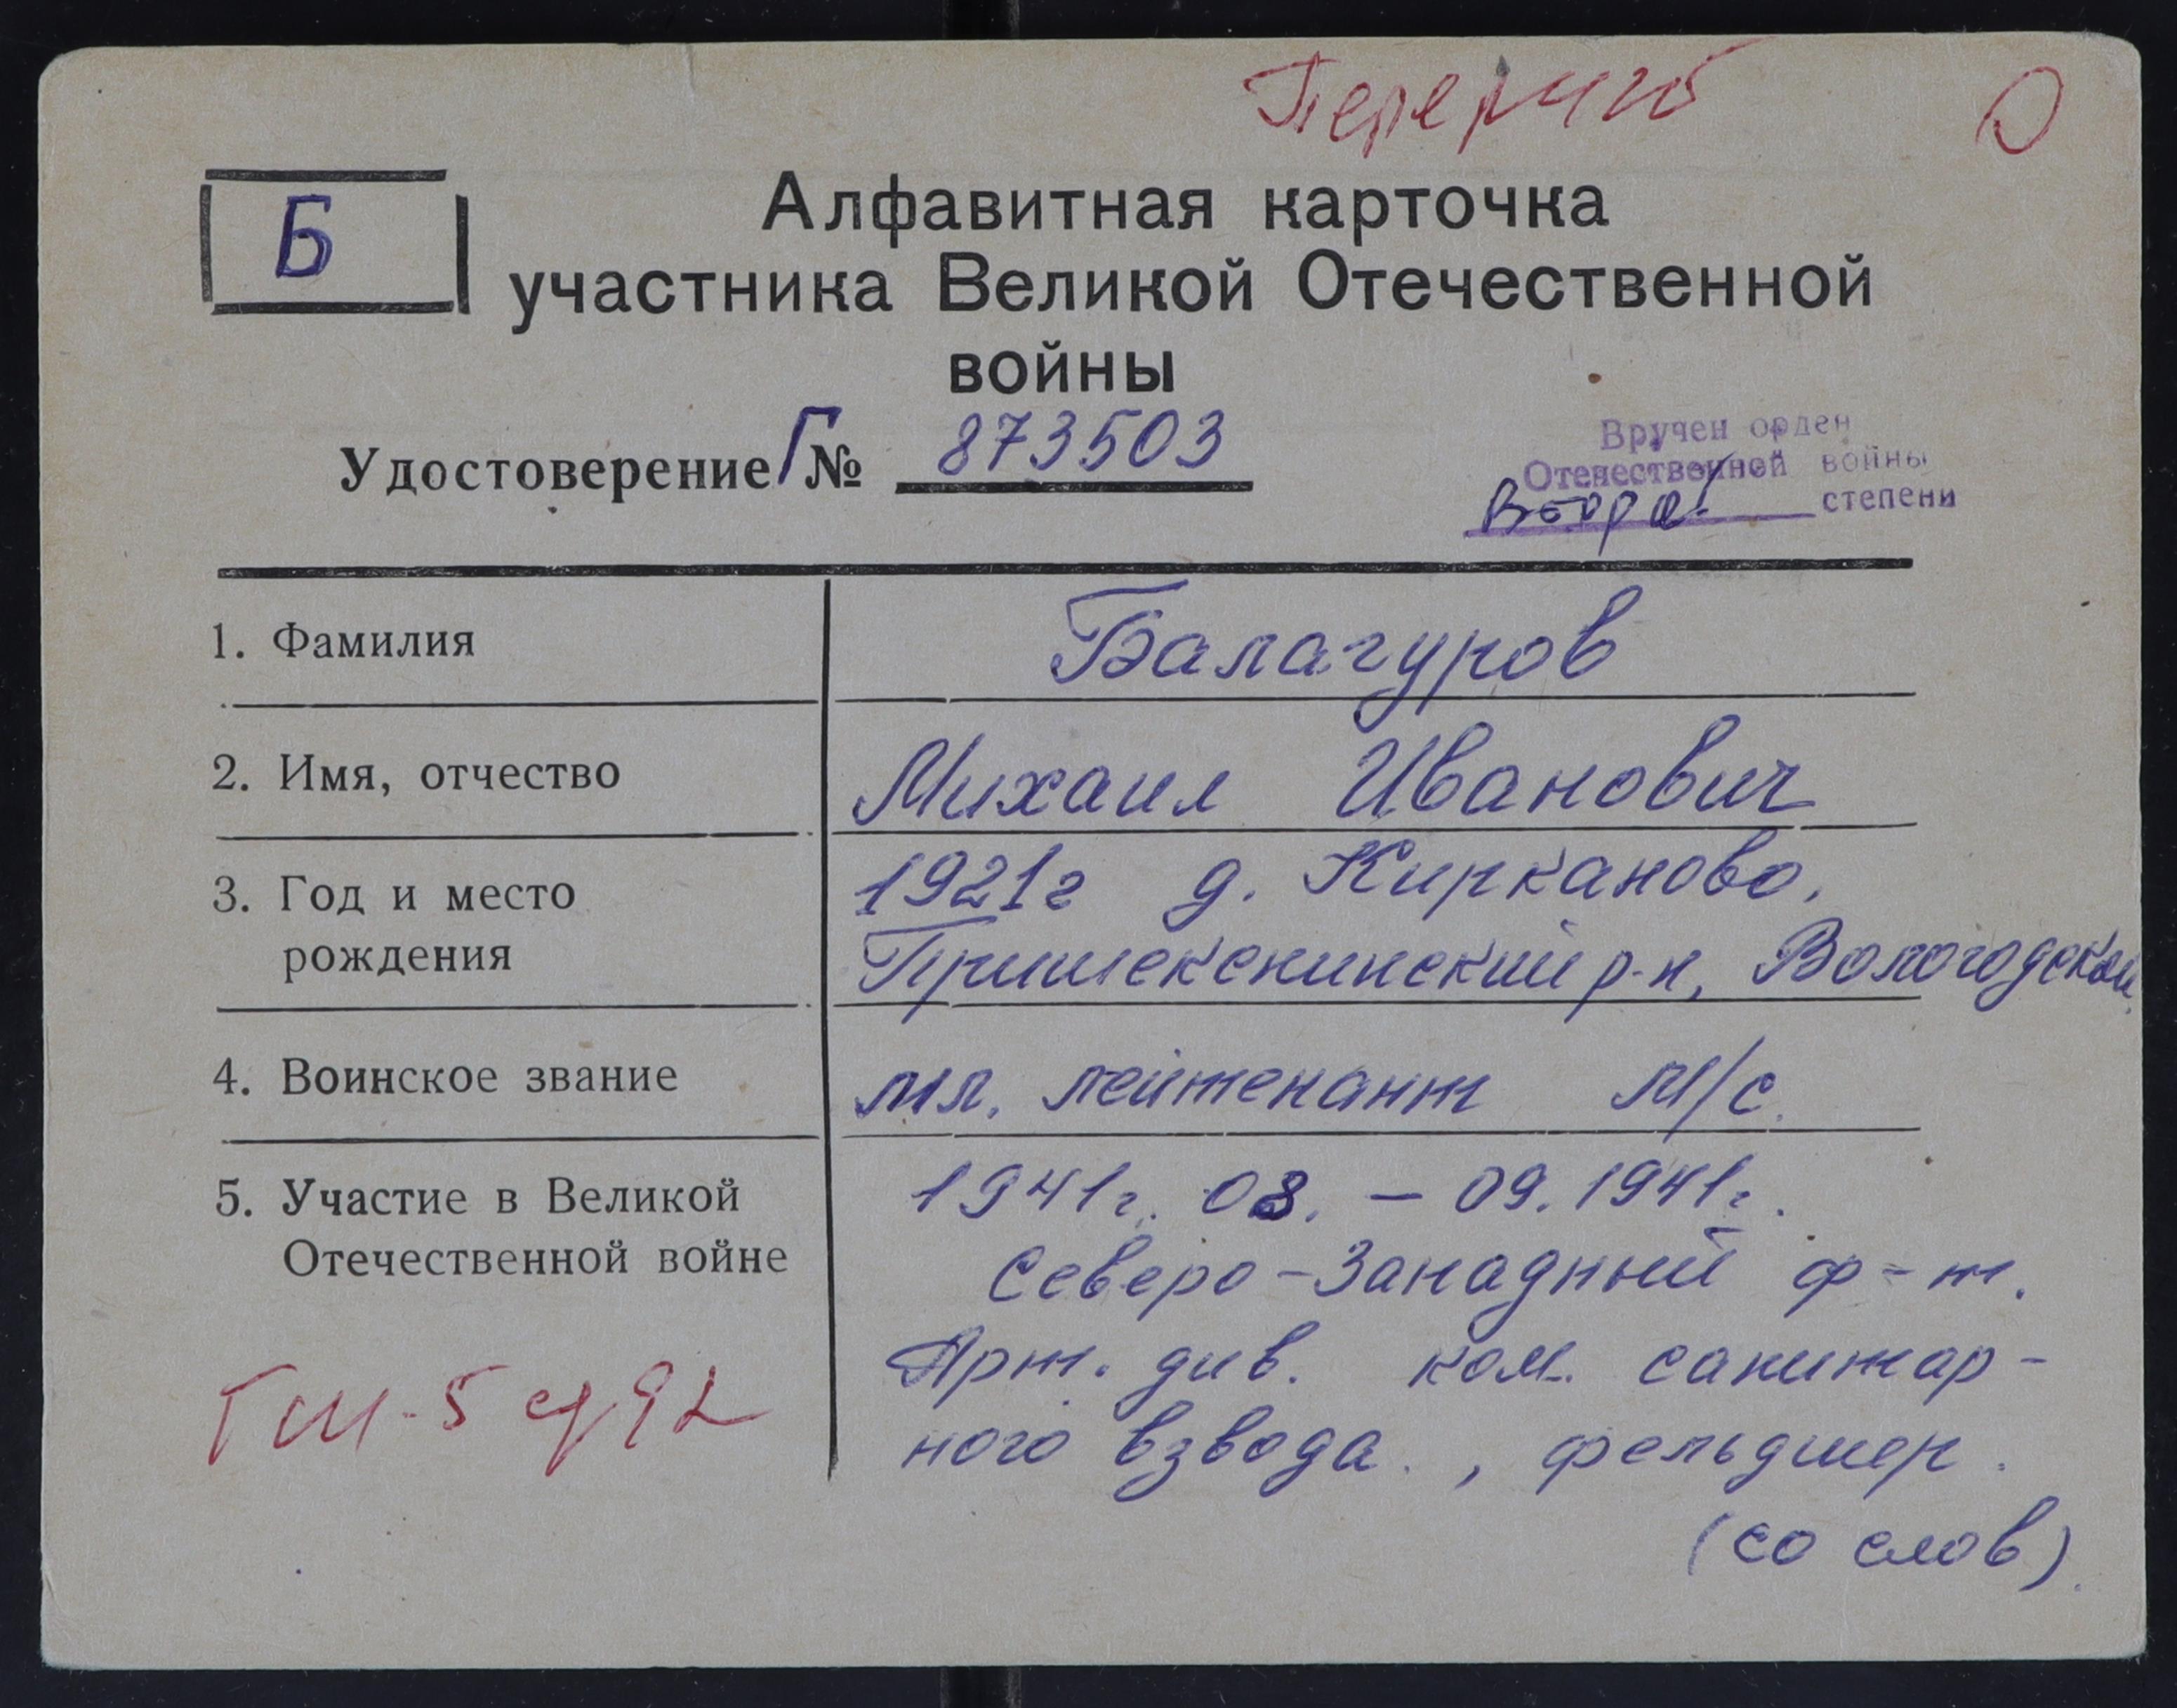 О
Б
Алфавитная карточка
участника Великой Отечественной
войны
Удостоверение Г № 873503
Вручен орден
Отечественной войны
степени
1. Фамилия Балагуров
2. Имя, отчество Михаил Иванович
3. Год и место 1921г д. Кирканово,
рождения Пришекснинский р-н, Вологодской
4. Воинское звание мл. лейтенант м/с.
5. Участие в Великой 1941г. 08. – 09. 1941г.
Отечественной войне Северо-Западный ф-т.
Арт. див. ком. санитар-
ного взвода., фельдшер.
(со слов).